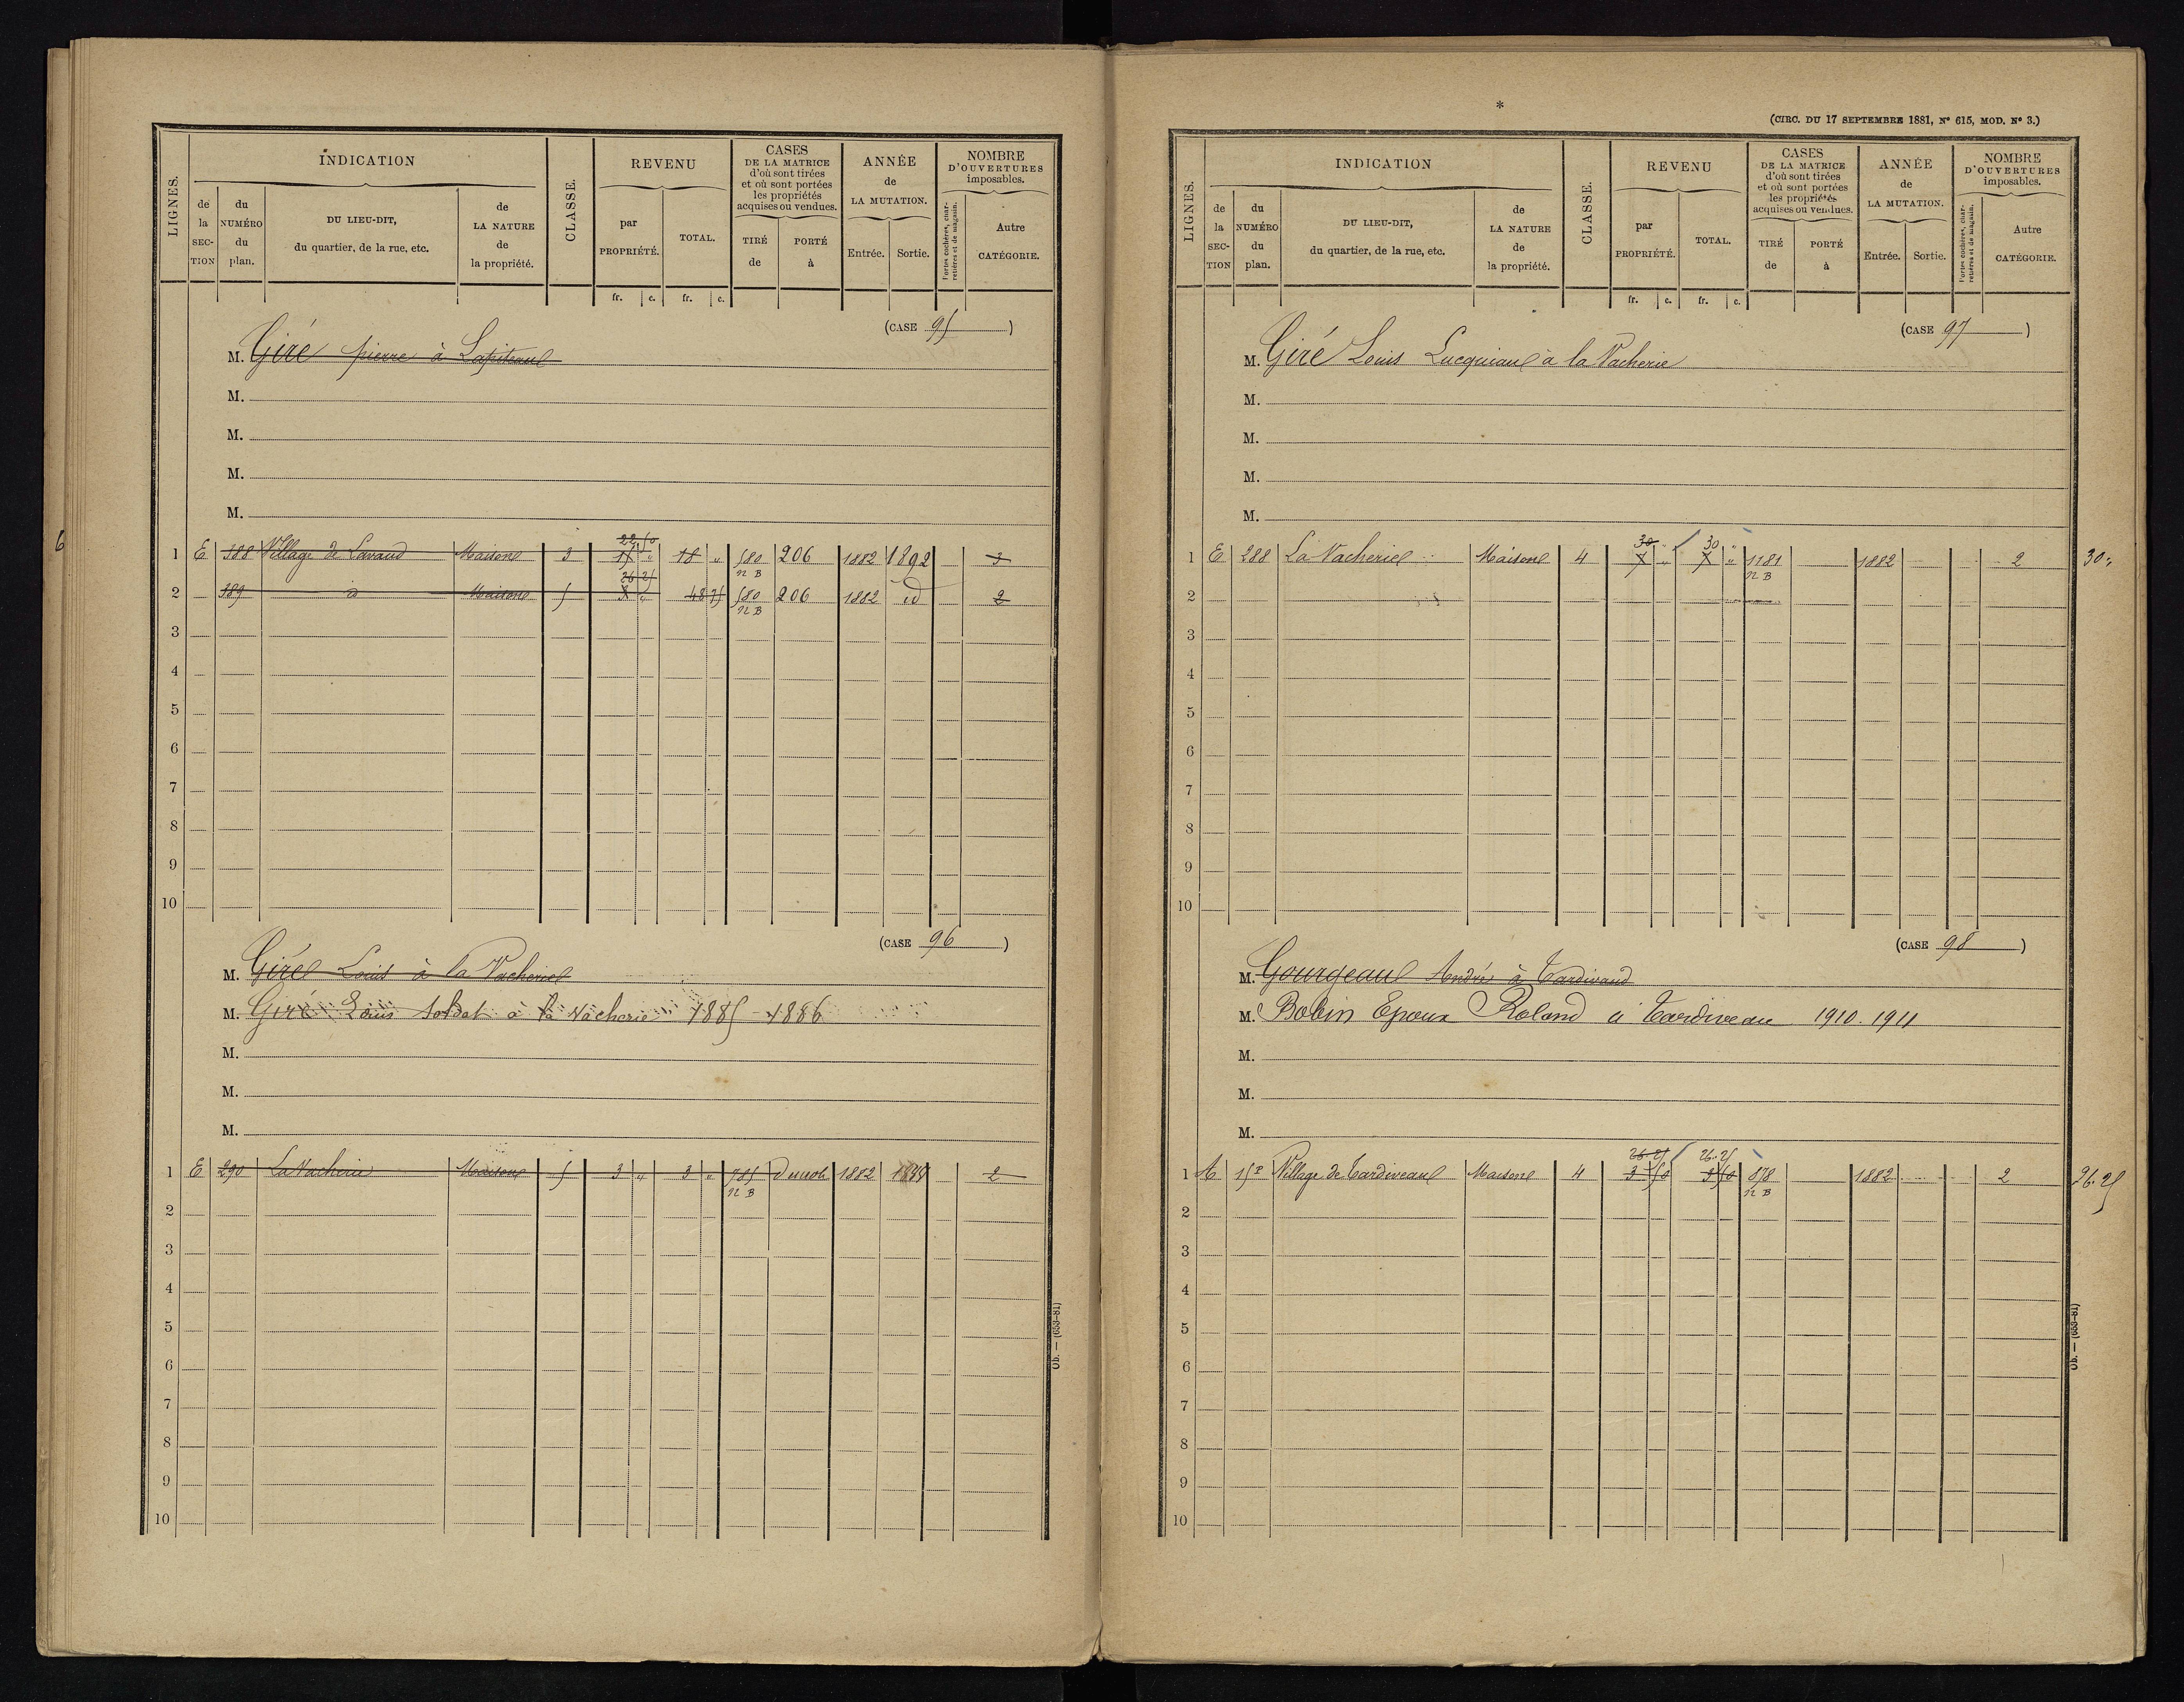 LIGNES.
INDICATION
de la SECTION
du NUMÉRO du plan.
DU LIEU-DIT, du quartier, de la rue, etc.
de LA NATURE de la propriété.
CLASSE.
REVENU
par PROPRIÉTÉ.
TOTAL.
CASES DE LA MATRICE d'où sont tirées et où sont portées les propriétés acquises ou vendues.
TIRÉ de
PORTÉ à
ANNÉE de LA MUTATION.
Entrée.
Sortie.
NOMBRE D'OUVERTURES imposables.
Portes cochères, charretières et de magasin.
Autre CATÉGORIE.
fr. c. fr. c.
(CASE 95)
M. Giré pierre à
M.
M.
M.
M.
22 50
1 E 188 Village de Lavaud Maison 3 15 " 18 " 580 206 1882 1892 3
n B
26 25
2 189 d Maison 5 3 " 48 75 580 206 1882 id 2
n B
3
4
5
6
7
8
9
10
(CASE 96)
M. Giré Louis à la Vacherie
M. Giré Louis soldat à la Vacherie 1885-1886
M.
M.
M.
1 E 290 La Vacherie Maison 5 3 " 3 " 785 1882 2
n B
2
3
4
5
6
7
8
9
10
Ob. — (653-81)
6
*
(CIRC. DU 17 SEPTEMBRE 1881, N° 615, MOD. N° 3.)
LIGNES.
INDICATION
de la SECTION
du NUMÉRO du plan.
DU LIEU-DIT, du quartier, de la rue, etc.
de LA NATURE de la propriété.
CLASSE.
REVENU
par PROPRIÉTÉ.
TOTAL.
CASES DE LA MATRICE d'où sont tirées et où sont portées les propriétés acquises ou vendues.
TIRÉ de
PORTÉ à
ANNÉE de LA MUTATION.
Entrée.
Sortie.
NOMBRE D'OUVERTURES imposables.
Portes cochères, charretières et de magasin.
Autre CATÉGORIE.
fr. c. fr. c.
(CASE 97)
M. Giré Louis Lucquiaud à la Vacherie
M.
M.
M.
M.
30 " 30 "
1 E 288 La Vacherie Maison 4 1181 1882 2 30 "
n B
2
3
4
5
6
7
8
9
10
(CASE 98)
M. Gourgeaud André à Tardivaud
M. Bobin Epoux Roland à Tardiveau 1910.1911
M.
M.
M.
26.25 26.25
1 A 15 P Village de Tardiveau Maison 4 3 50 3 50 878 1882 2 26.25
n B
2
3
4
5
6
7
8
9
10
Ob. — (653-81)